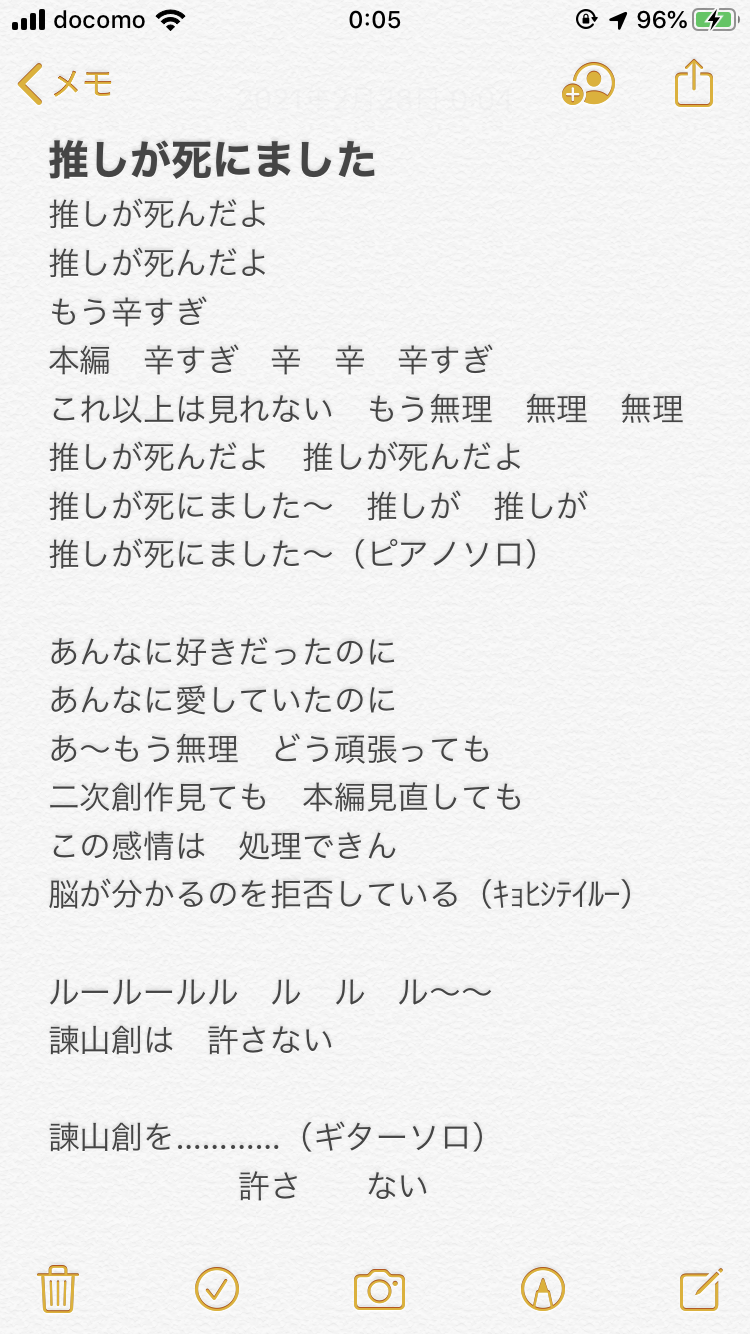 docomo 0:05 96%
メモ
推しが死にました
推しが死んだよ
推しが死んだよ
もう辛すぎ
本編　辛すぎ　辛　辛　辛すぎ
これ以上は見れない　もう無理　無理　無理
推しが死んだよ　推しが死んだよ
推しが死にました〜　推しが　推しが
推しが死にました〜（ピアノソロ）
あんなに好きだったのに
あんなに愛していたのに
あ〜もう無理　どう頑張っても
二次創作見ても　本編見直しても
この感情は　処理できん
脳が分かるのを拒否している（ｷｮﾋｼﾃｲﾙｰ）
ルールールル　ル　ル　ル〜〜
諫山創は　許さない
諫山創を…………（ギターソロ）
許さ　　ない